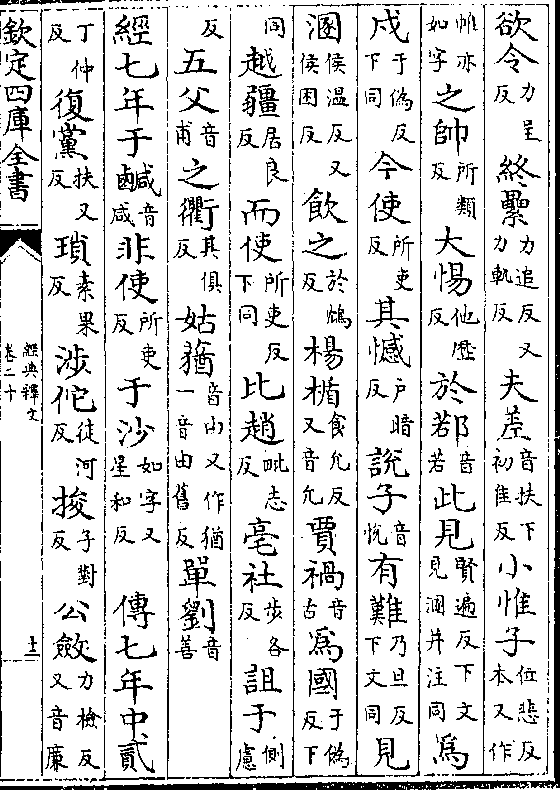 欲令力呈反終纍力追反又力軌反夫差音扶下初佳反小惟子位悲反本又作
帷亦如字之帥所類反大惕他歷反於鄀音若此見賢遍反下文見溷并注同為
戍于偽反下同今使所吏反其憾戶暗反說子音悅有難乃旦反下文同見
溷侯溫反又侯困反飲之於鴆反楊楯食允反又音允賈禍音古為國于偽反下
同越疆居良反而使所吏反下同比趙毗志反亳社步各反詛于側慮
反五父音甫之衢其俱反姑蕕音由又作猶一音由舊反單劉音善
經七年于鹹音咸非使所吏反于沙如字又星和反傳七年中貳
丁仲反復黨扶又反瑣素果反涉佗徒河反捘子對反公斂力檢反又音廉
欽定四庫全書
經典釋文
卷二十
十二